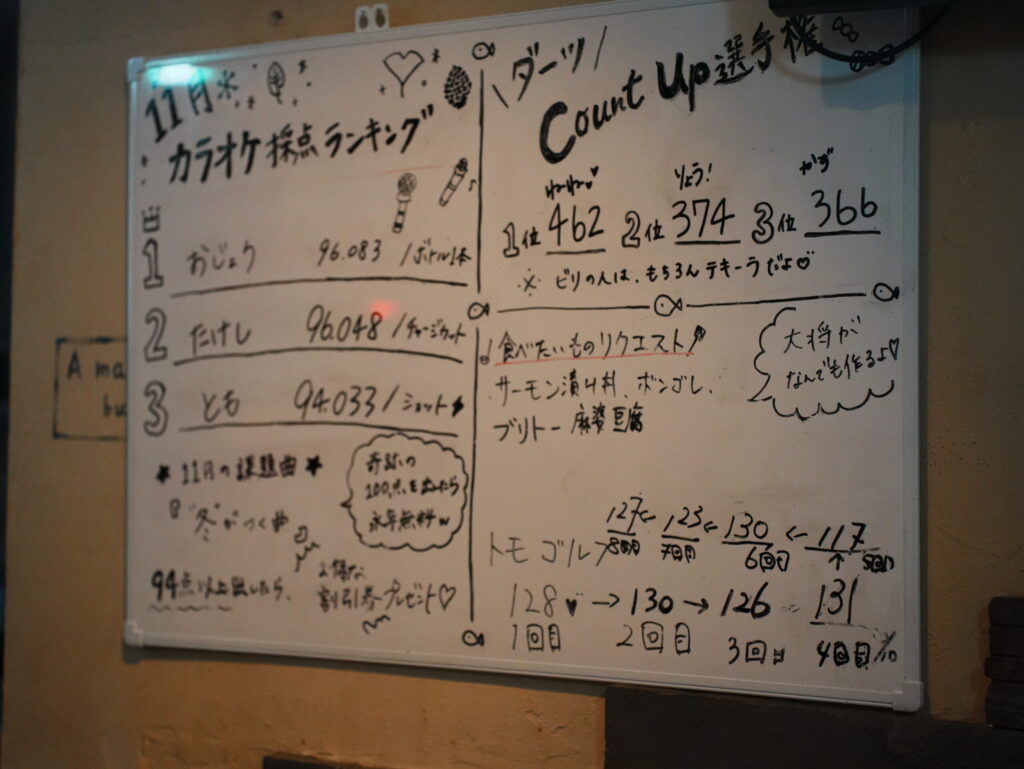 11月
カラオケ採点ランキング
1 おじょう 96.083 /ボトル1本
2 たけし 96.048 /チャージカット
3 とも 94.033 /ショット
★ 11月の課題曲 ★
"冬"がつく曲
奇跡の
100点を出したら
永年無料w
94点以上出したら、
お得な
割引券プレゼント♡
\ダーツ/
Count Up選手権
ねーね♡ りょう! かず
1位 462 2位 374 3位 366
※ ビリの人は、もちろんテキーラだよ♡
食べたいものリクエスト
サーモン漬け丼、ボンゴレ、
ブリトー 麻婆豆腐
大将が
なんでも作るよ♡
トモゴルフ
127 ← 123 ← 130 ← 117
8回目 7回目 6回目 5回目
128 → 130 → 126 131
1回目 2回目 3回目 4回目
A ma
bu